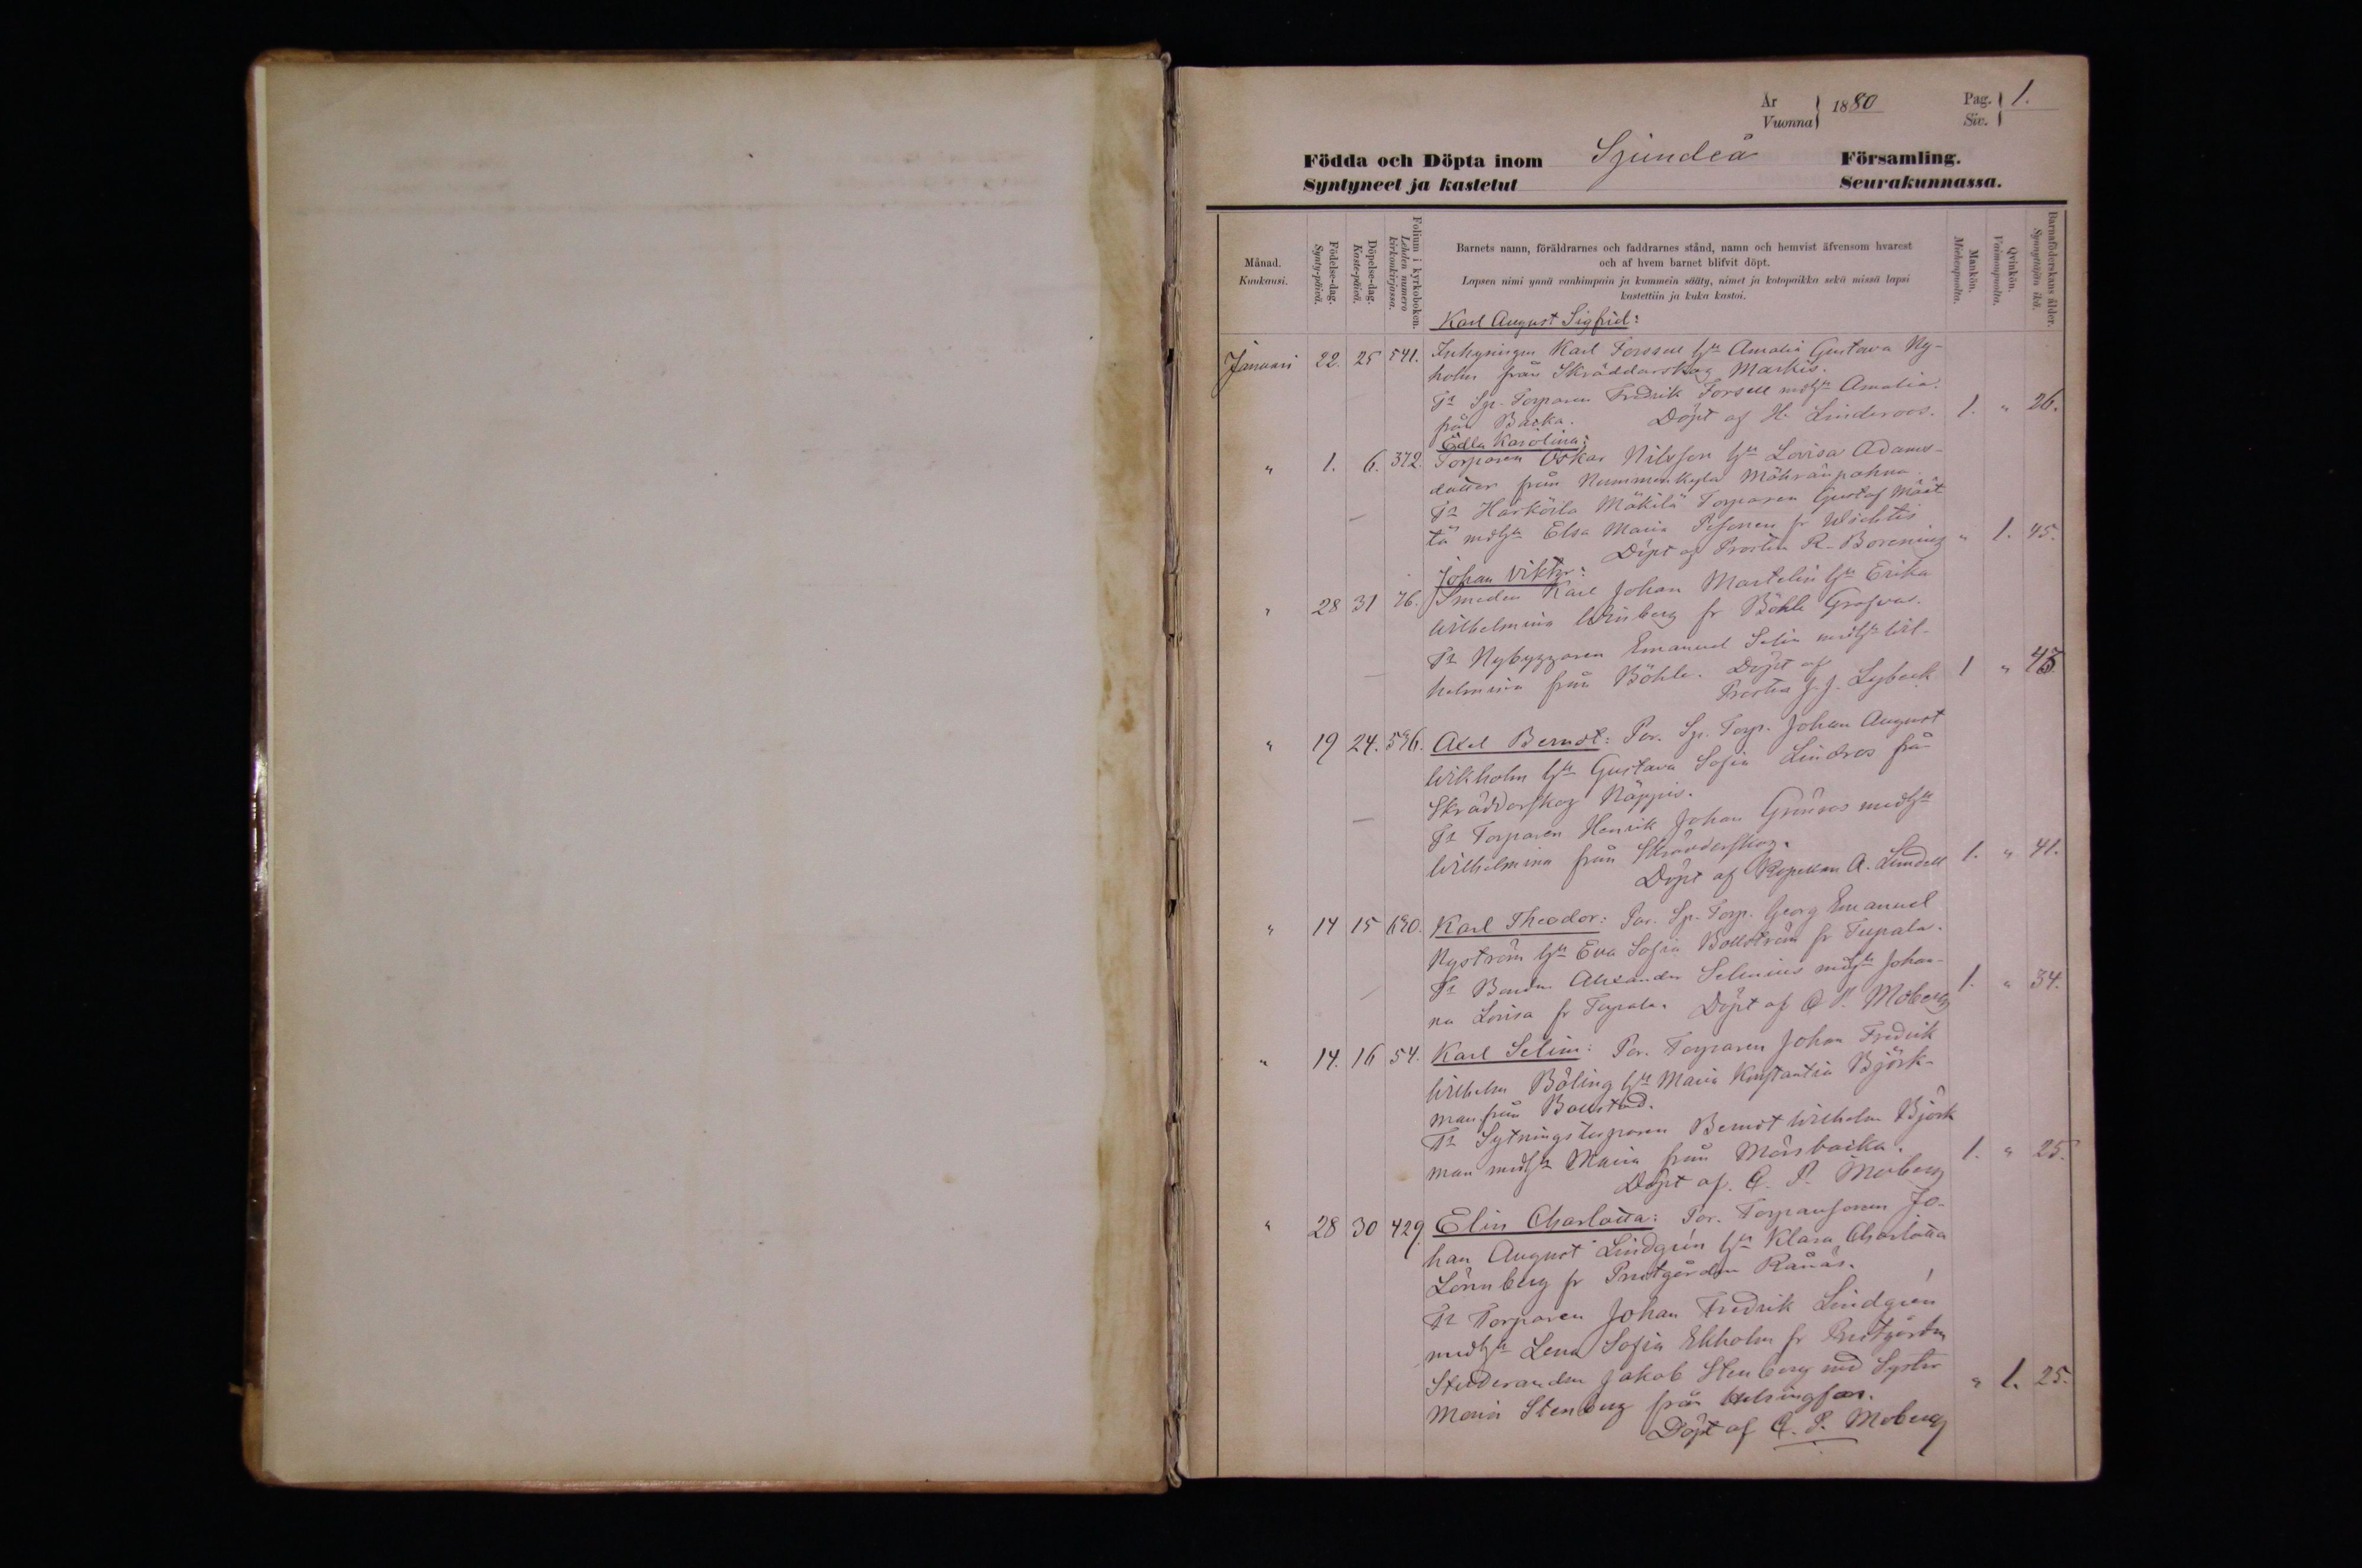 År 1880 Pag. 1.
Vuonna Siv.
Födda och Döpta inom Sjundeå Församling.
Syntyneet ja kastetut Seurakunnassa.
Månad.
Kuukausi.
Födelse-dag.
Synty-päivä.
Döpelse-dag.
Kaste-päivä.
Folium i kyrkoboken.
Lehden numero
kirkonkirjassa.
Barnets namn, föräldrarnes och faddrarnes stånd, namn och hemvist äfvensom hvarest
och af hvem barnet blifvit döpt.
Lapsen nimi ynnä vanhimpain ja kummein sääty, nimet ja kotopaikka sekä missä lapsi
kastettiin ja kuka kastoi.
Mankön.
Miehenpuolta.
Qvinkön.
Vaimonpuolta.
Barnaföderskans ålder.
Synnyttäjän ikä.
Karl August Sigfrid:
Januari 22. 25 541. Karl Forssell Hu Amalia Gustava Ny-
holm från Skräddarskog Markis.
Ts Sp. Torparen Fredrik Forsell med Hu Amalia
från Backa. Döpt af H. Linderoos. 1. " 26.
Edla Karolina:
" 1. 6. 372. Torparen Oskar Nilsson Hu Lovisa Adams-
dotter från Nummenkylä
Ts Harköila Mäkilä Torparen Gustaf Mäat
tä med Hu Elsa Maria fr Wichtis
Döpt af Prosten R. Borenius " 1. 45.
Johan Viktor:
" 28 31 76. Smeden Karl Johan Martelin Hu Erika
Wilhelmina fr Böhle Grofvas.
Ts Nybyggaren Emanuel Selin med Hu Wil-
helmina från Böhle. Döpt af
Prosten J. J. Lybeck 1 "
" 19 24. 596. Axel Berndt: Por. Sp. Torp. Johan August
Wikholm Hu Gustava Sofia Lindros från
Skräddarskog Näppis.
Ts Torparen Henrik Johan Grönroos med Hu
Wilhelmina från Skräddarskog.
Döpt af Kapellan A. Lundell 1. " 41.
" 14 15 690. Karl Theodor: Por. Sp. Torp. Georg Emanuel
Nyström Hu Eva Sofia Bollström fr Tupala.
Ts Bonden Alexander Selenius med Hu Johan-
na Lovisa fr Tupala. Döpt af C. P. Moberg 1. " 34.
" 14. 16 54. Karl Selim: Por. Torparen Johan Fredrik
Wilhelm Böling Hu Maria Konstantia Björk-
man från Bollstad.
Ts Sytningstorparen Berndt Wilhelm Björk
man med Hu Maria från Mörsbacka. 1. " 25.
Döpt af. C. P. Moberg
" 28 30 429. Elin Charlotta: Por. Torparsonen Jo-
han August Lindgrén Hu Klara Charlotta
Lönnberg fr Prestgården Rånäs.
Ts Torparen Johan Fredrik Lindgrén
med Hu Lena Sofia Ekholm fr Prestgården
Studeranden Jakob Stenberg med Syster
Maria Stenberg från Helsingfors. " 1. 25.
Döpt af C. P. Moberg